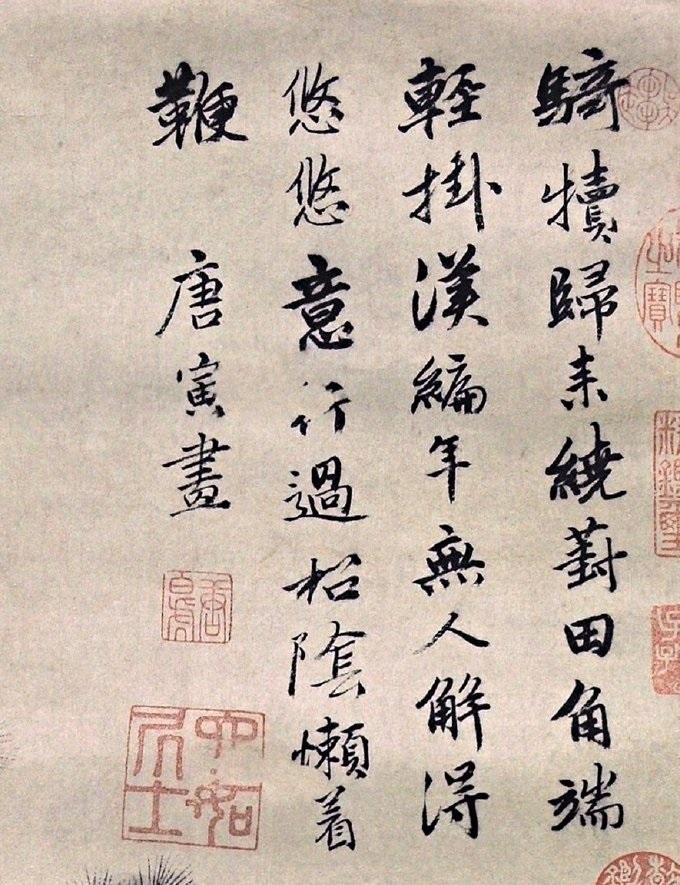 騎犢歸来繞葑田角端
輕掛漢編年無人解得
悠悠意行過松陰懶着
鞭 唐寅畫
唐白虎
六如居士
之寶